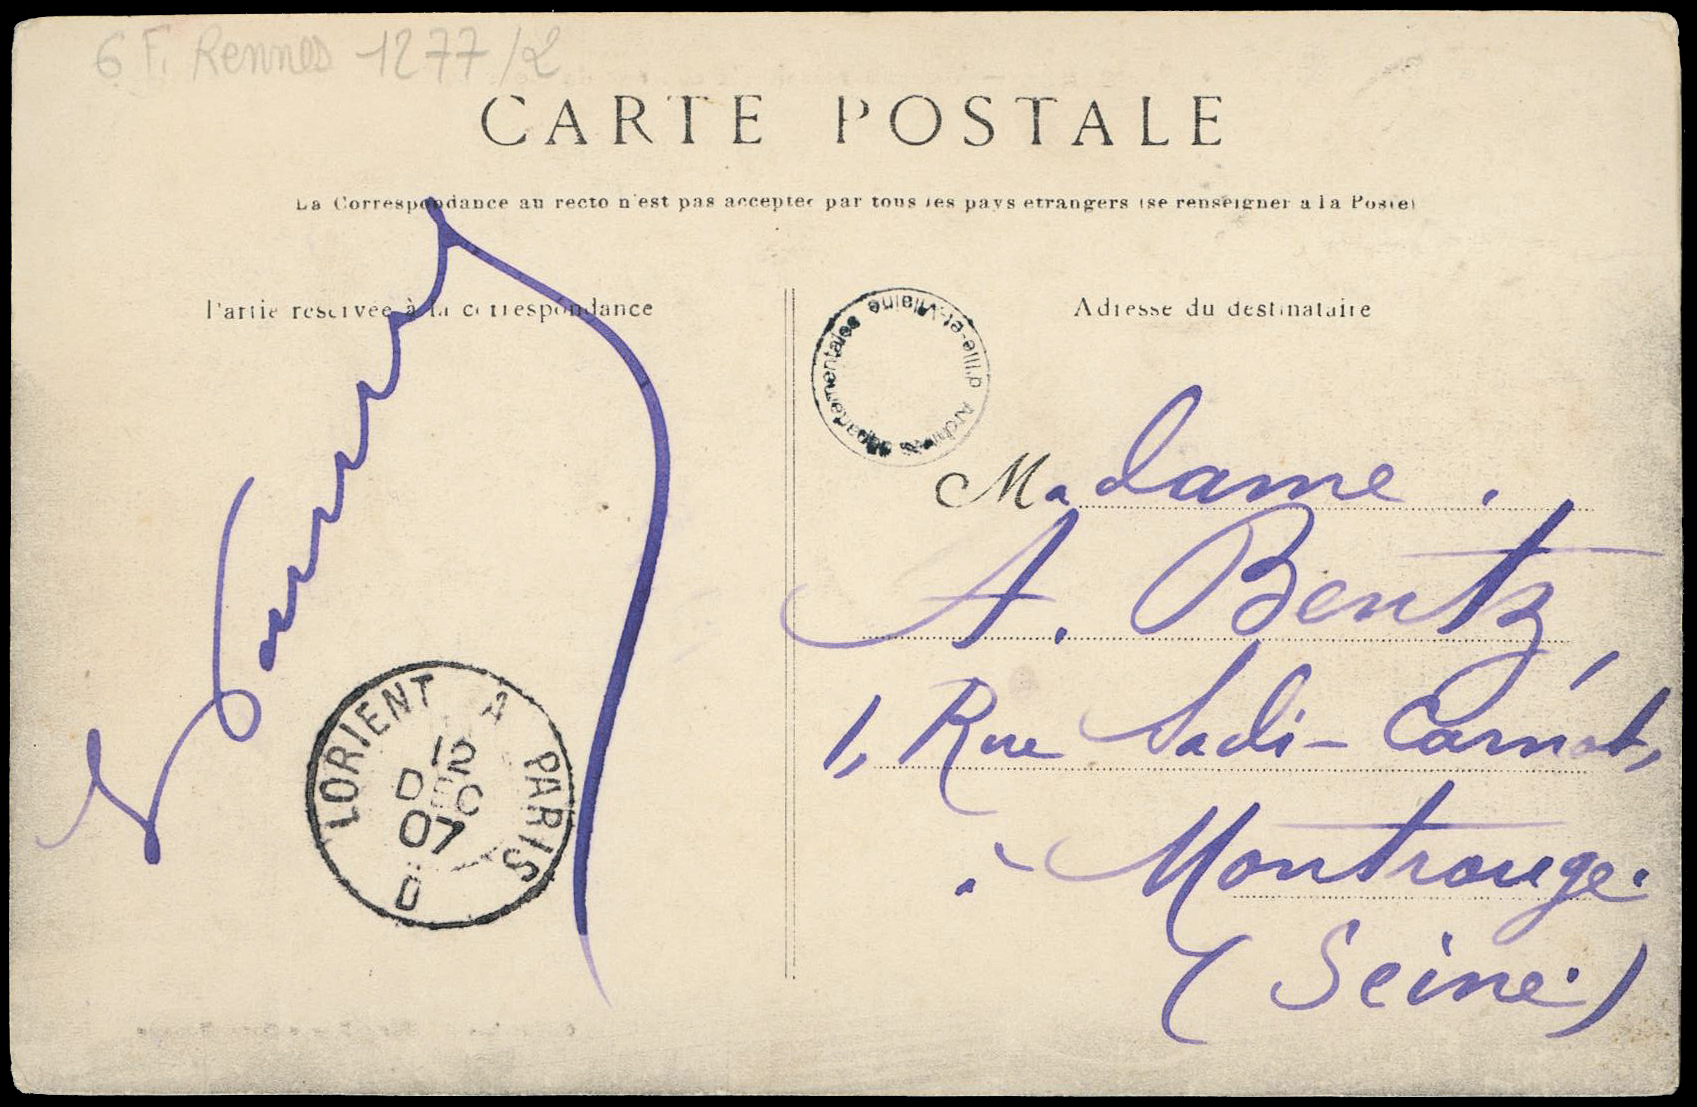 6 F. Rennes 1277/2
CARTE POSTALE
La Correspondance au recto n'est pas acceptée par tous les pays etrangers (se renseigner a la Poste)
Partie reservée à la correspondance
Adresse du destinataire
Archives départementales d'Ille-et-Vilaine
Madame.
A. Bentz
1, Rue Sadi-Carnot,
à Montrouge.
(Seine)
LORIENT A PARIS
12
DEC
07
D